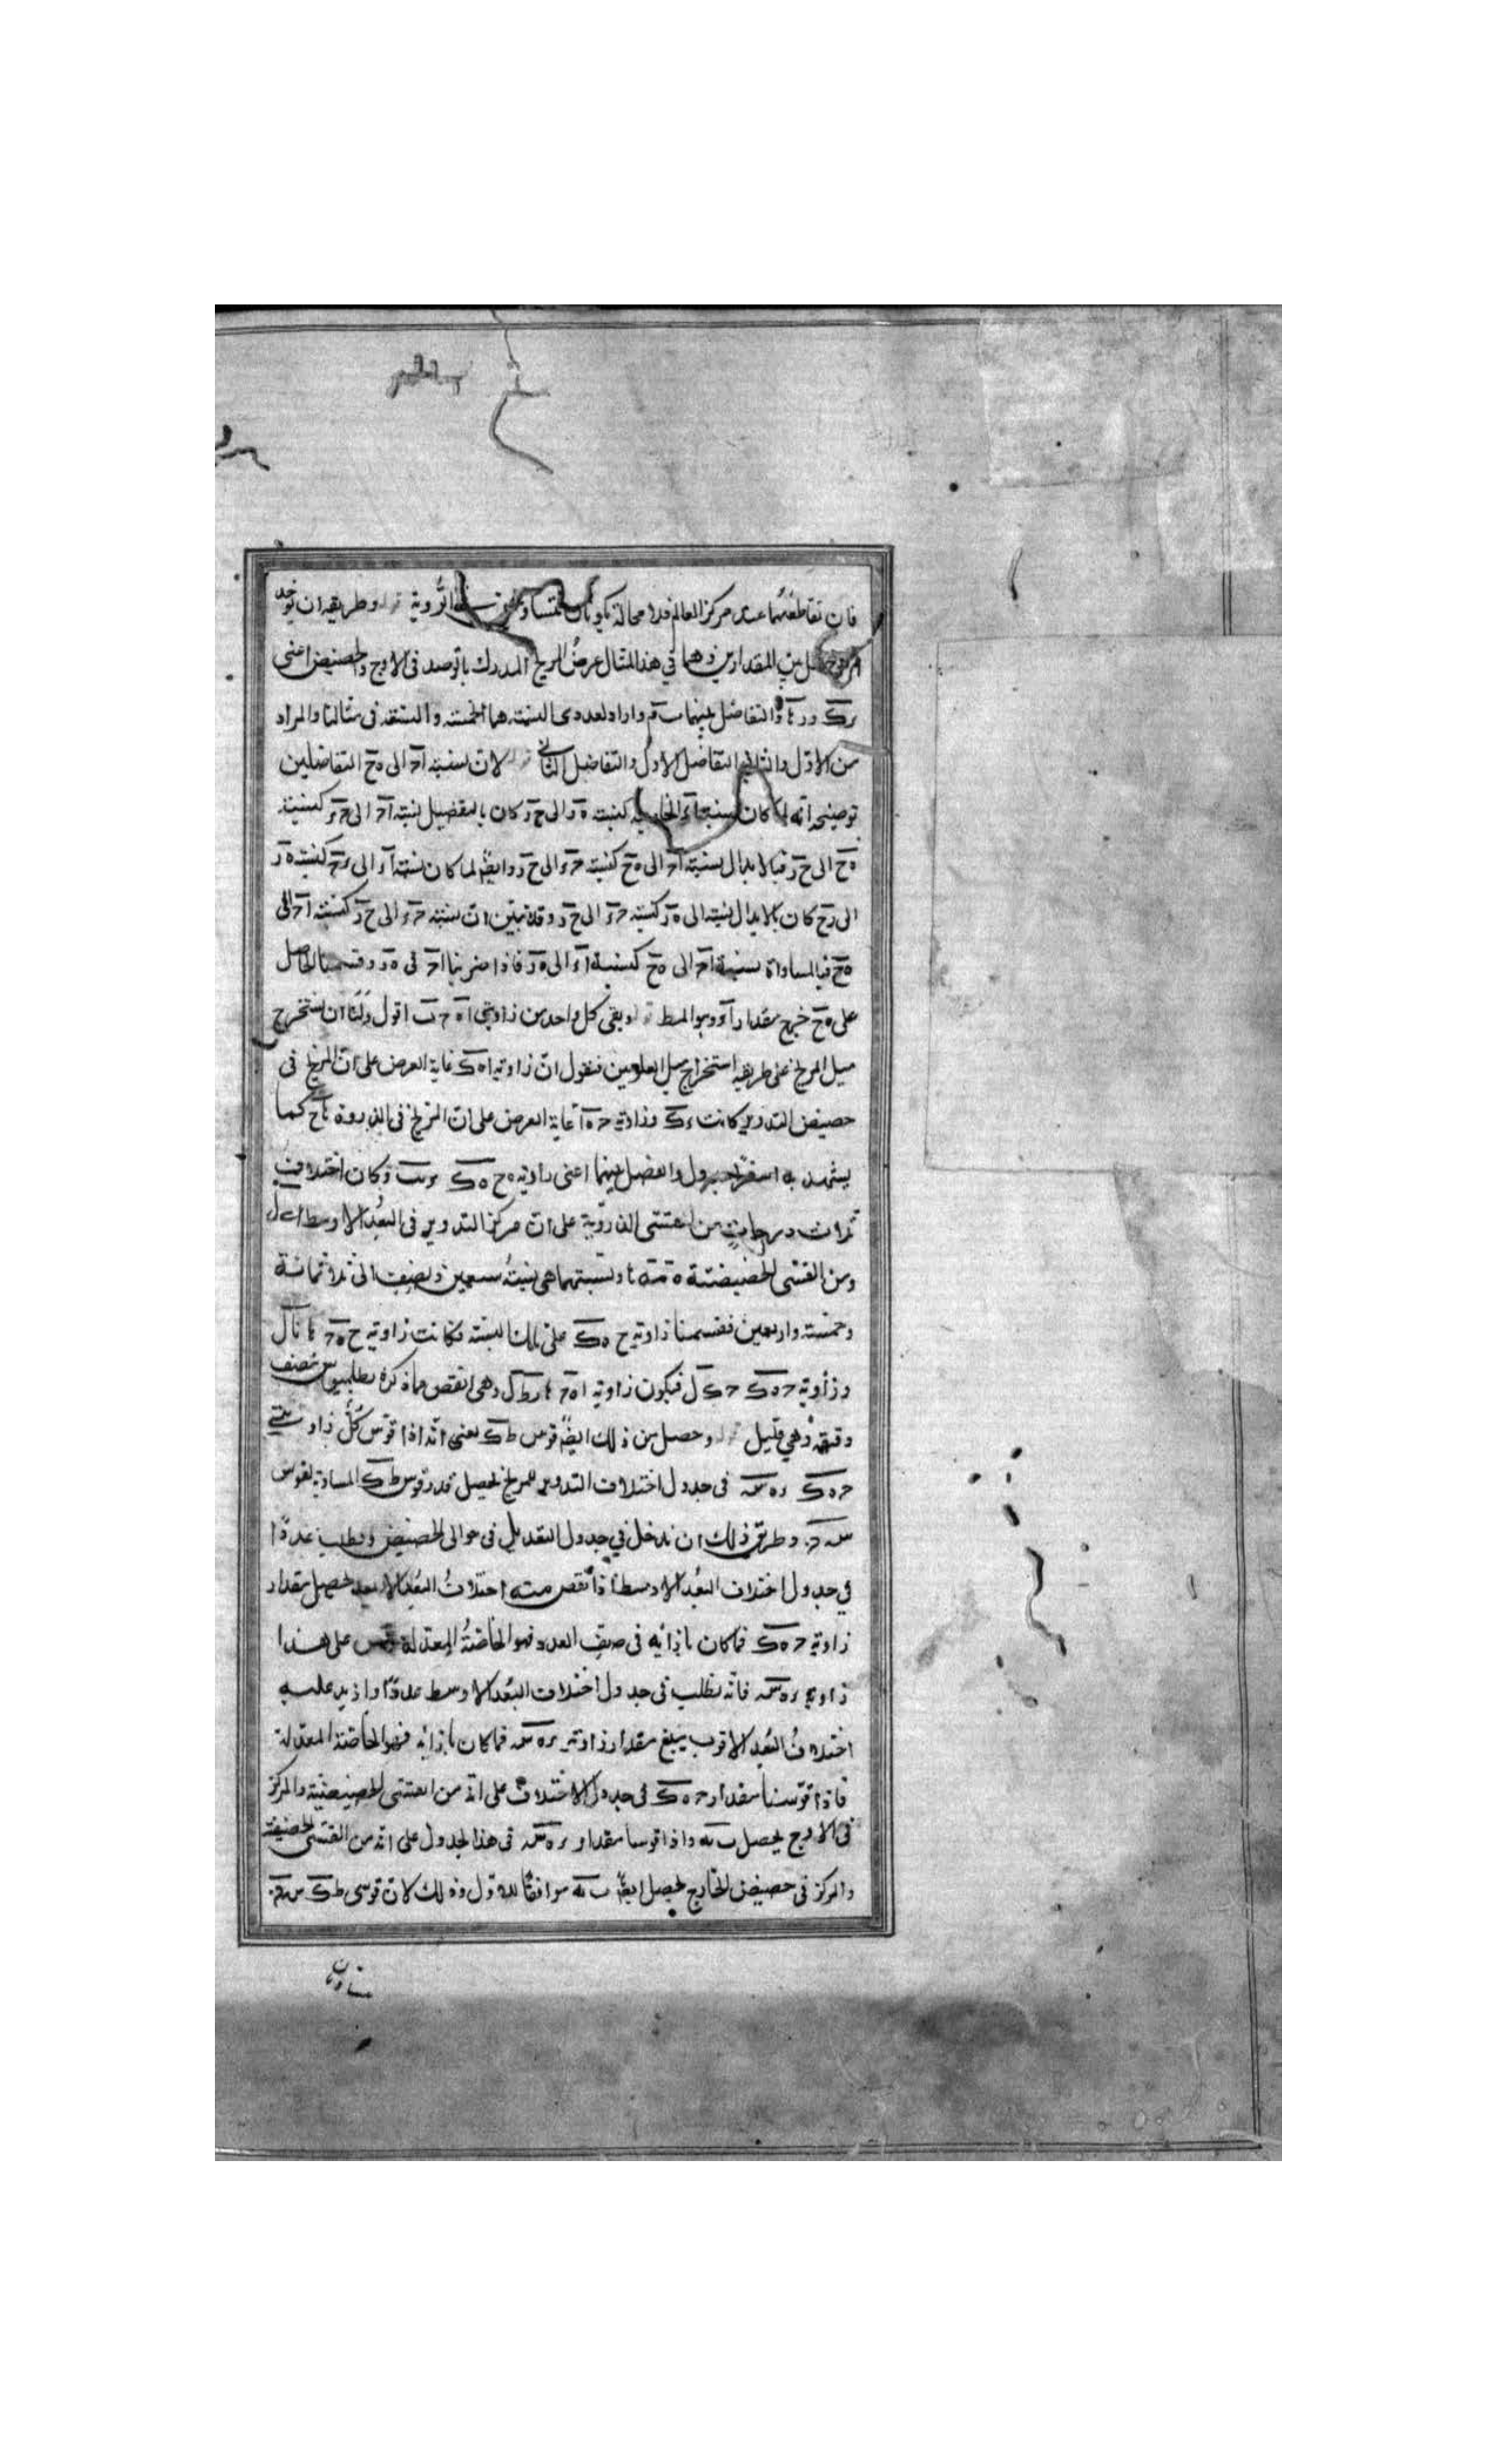 فان تقاطعتهما عند مركز العالم فلا محالة يكونان متساو الرؤية وطريقه ان يوخذ
بين المقدارين وهما في هذا المثال عرض المريخ المدرك بالرصد في الاوج والحضيض اعنى
والتفاضل بينهما واراد بعددى النسبة هما الخمسة والتسعة فى مثالنا والمراد
من الاول والثانى التفاضل الاول والتفاضل الثانى لان نسبة اح الى ه ح التفاضلين
توضيحه انه لما كان نسبة كنسبة ه ر الى ح ر كان بالتفضيل نسبة اح الى ح ء كنسبة
ه ح الى ح ر فبالابدال نسبة اح الى ه ح كنسبة ح ء الى ح ر وايضا لما كان نسبة اء الى ء ح كنسبة ه ر
الى ر ح كان بالابدال نسبة الى ه ر كنسبة ح ء الى ح ر وقد تبين ان نسبة ح ء الى ح ر كنسبة اح الى
ه ح فبالمساواة نسبة اح الى ه ح كنسبة اء الى ه ر فاذا ضربنا اح فى ه ر وقسمنا الحاصل
على ه ح خرج مقدار اء وهو المط وبقى كل واحد من زاويتى اقول ولنا ان نستخرج
ميل المريخ على طريقة استخراج ميل العلويين فنقول ان زاوية اه ك غاية العرض على ان المريخ فى
حضيض التدوير كانت وزاوية ح ه ا غاية العرض على ان المريخ فى الذروة كما
يشهد به والفضل بينهما اعنى زاوية ح ه ك وكان اختلاف
ثلاث درجات من القسى الذروية على ان مركز التدوير فى البعد الاوسط
ومن القسى الحضيضية ونسبتهما هى نسبة سبعين ونصف الى ثلاثمائة
وخمسة واربعين فقسمنا زاوية ح ه ك على تلك النسبة فكانت زاوية ح ه
وزاوية ح ه ك فيكون زاوية اه ح وهى انقص مما ذكره بطلميوس بنصف
دقيقة وهى قليل وحصل من ذلك ايضا قوس ط ك يعنى انه اذا قوس كل زاويتى
ح ه ك ر ه س فى جدول اختلاف التدوير للمريخ تحصل قدر قوس ط ك المساوية لقوس
س م وطريق ذلك ان ندخل في جدول التعديل فى حوالى الحضيض ونطلب عددا
في جدول اختلاف البعد الاوسط اذا نقص منه اختلاف البعد الابعد حصل مقدار
زاوية ح ه ك فما كان بازائه فى صف العدد فهو الخاصة المعدلة على هذا
زاوية ر ه س فانه نطلب فى جدول اختلاف البعد الاوسط عددا اذا زيد عليه
اختلاف البعد الاقرب يبلغ مقدار زاوية ر ه س فما كان بازائه فهو الخاصة المعدلة
فاذا قوسنا مقدار ح ه ك فى جدول الاختلاف على انه من القسى الحضيضية والمركز
فى الاوج يحصل واذا قوسنا مقدار ر ه س فى هذا الجدول على انه من القسى الحضيضية
والمركز فى حضيض الخارج يحصل ايضا موافقا للاول وذلك لان قوسى ط ك س م